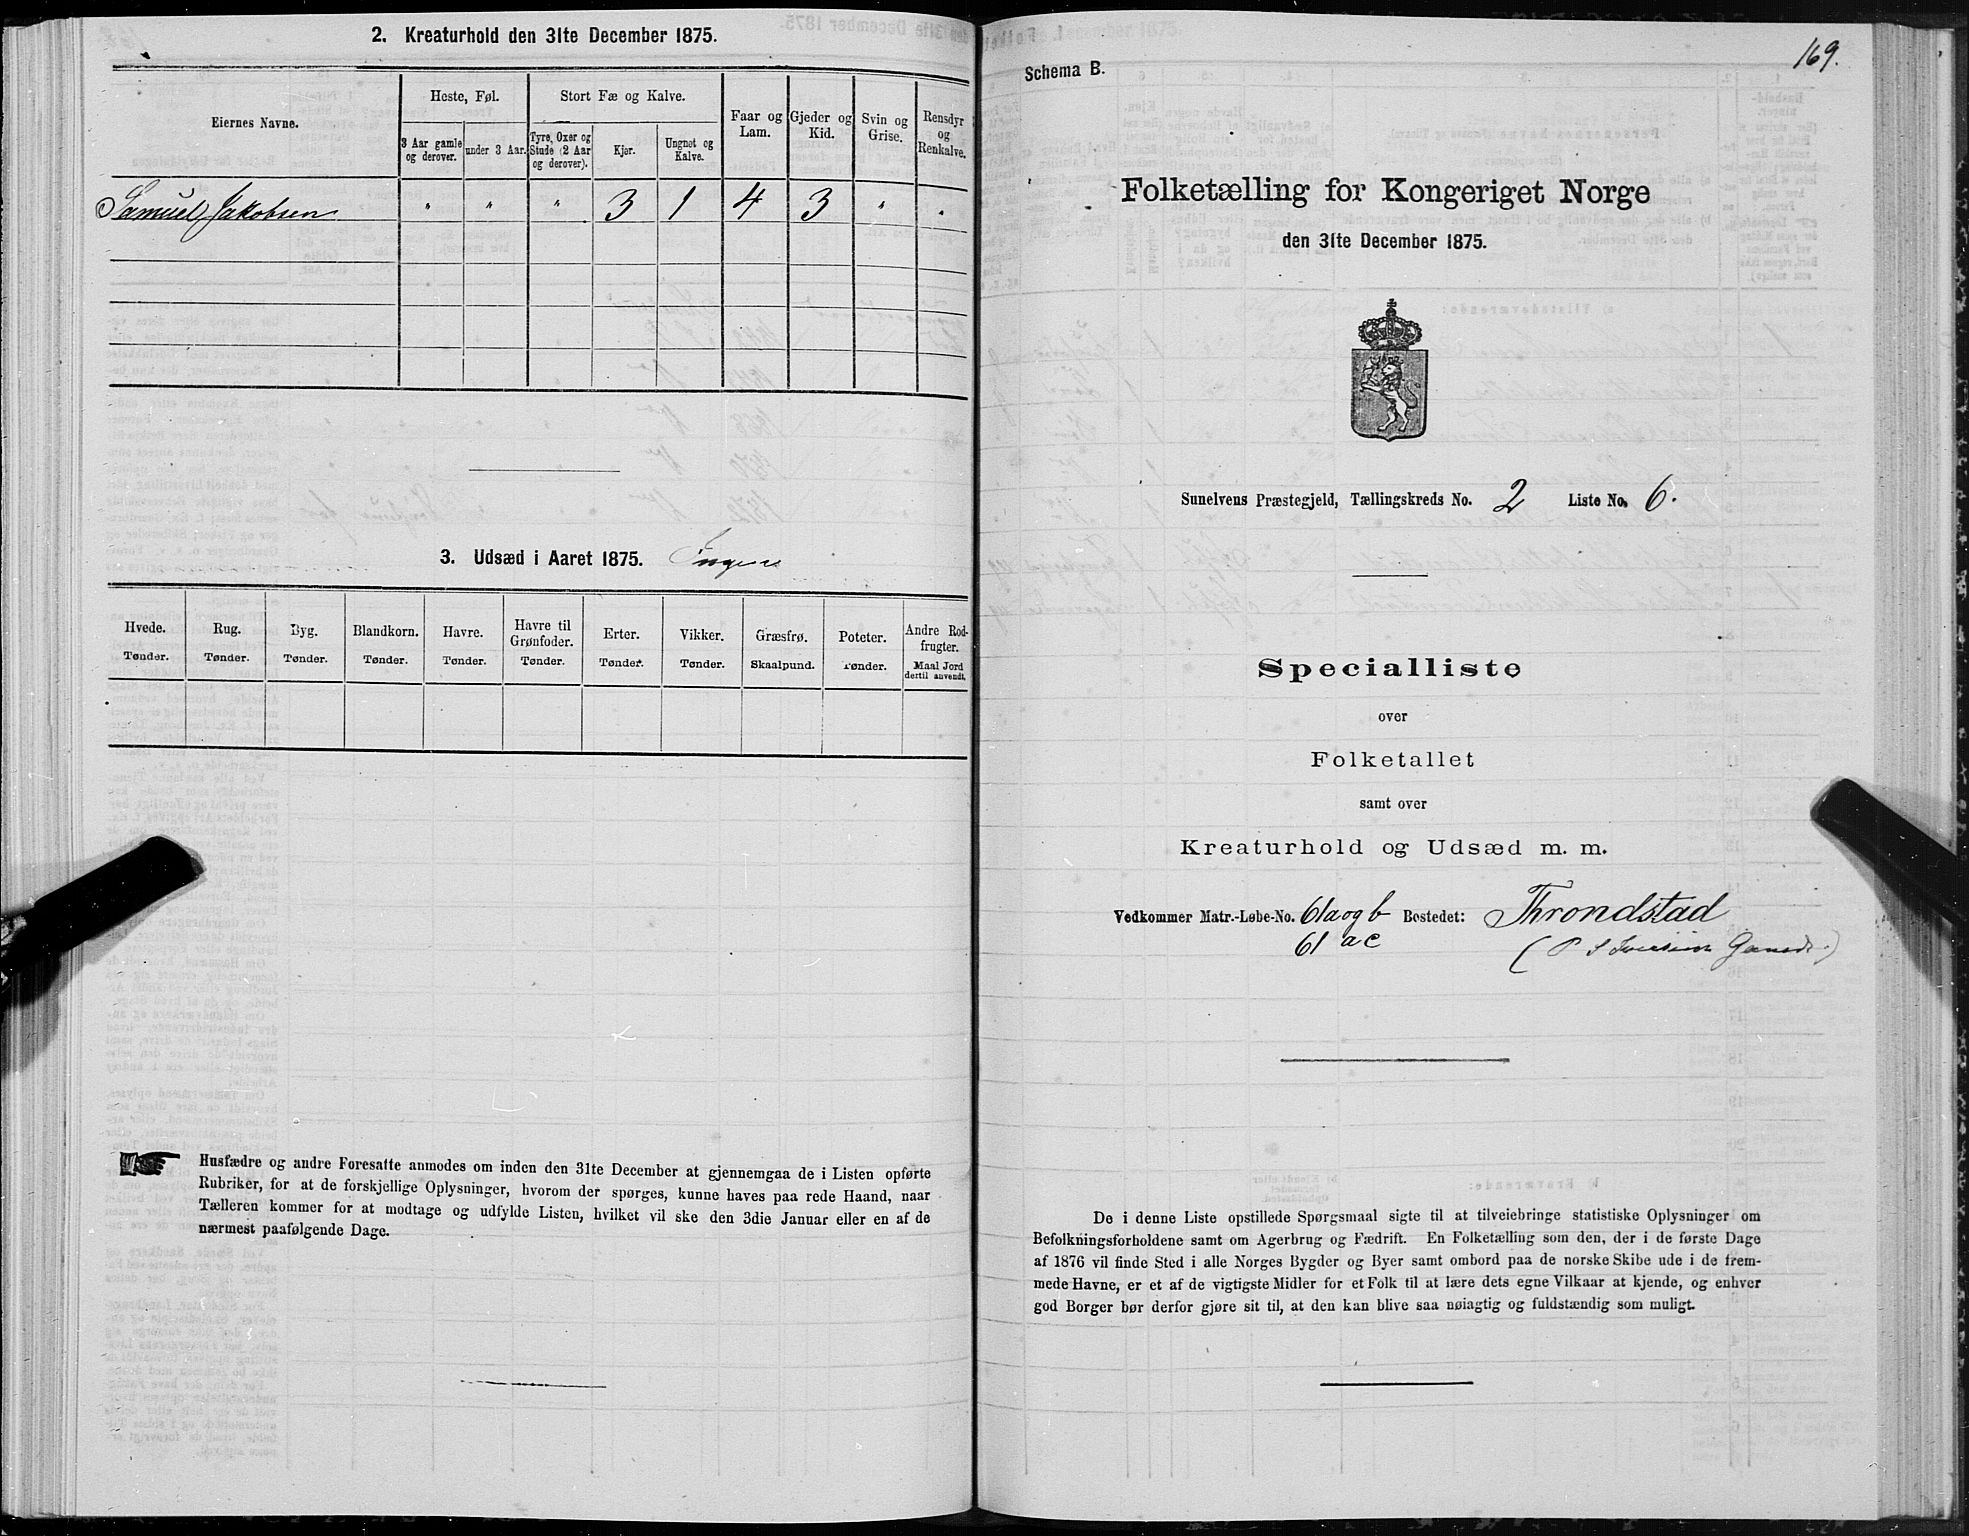 2. Kreaturhold den 31te December 1875.
Eiernes Navne.
Heste, Føl.
Stort Fæ og Kalve.
Faar og Lam.
Gjeder og Kid.
Svin og Grise.
Rensdyr og Renkalve.
3 Aar gamle og derover.
under 3 Aar.
Tyre, Oxer og Stude (2 Aar og derover).
Kjør.
Ungnet og Kalve.
Samuel Jakobsen " " " 3 1 4 3 " "
3. Udsæd i Aaret 1875. Ingen
Hvede. Rug. Byg. Blandkorn. Havre. Havre til Grønfoder. Erter. Vikker. Græsfrø. Poteter. Andre Rodfrugter.
Tønder. Tønder. Tønder. Tønder. Tønder. Tønder. Tønder. Tønder. Skaalpund. Tønder. Maal Jord dertil anvendt.
Husfædre og andre Foresatte anmodes om inden den 31te December at gjennemgaa de i Listen opførte
Rubriker, for at de forskjellige Oplysninger, hvorom der spørges, kunne haves paa rede Haand, naar
Tælleren kommer for at modtage og udfylde Listen, hvilket vil ske den 3die Januar eller en af de
nærmest paafølgende Dage.
169.
Schema B.
Folketælling for Kongeriget Norge
den 31te December 1875.
Sunelvens Præstegjeld, Tællingskreds No. 2 Liste No. 6.
Specialliste
over
Folketallet
samt over
Kreaturhold og Udsæd m. m.
Vedkommer Matr.-Løbe-No. 61a og b Bostedet: Throndstad
61 ac
De i denne Liste opstillede Spørgsmaal sigte til at tilveiebringe statistiske Oplysninger om
Befolkningsforholdene samt om Agerbrug og Fædrift. En Folketælling som den, der i de første Dage
af 1876 vil finde Sted i alle Norges Bygder og Byer samt ombord paa de norske Skibe ude i de frem-
mede Havne, er et af de vigtigste Midler for et Folk til at lære dets egne Vilkaar at kjende, og enhver
god Borger bør derfor gjøre sit til, at den kan blive saa nøiagtig og fuldstændig som muligt.